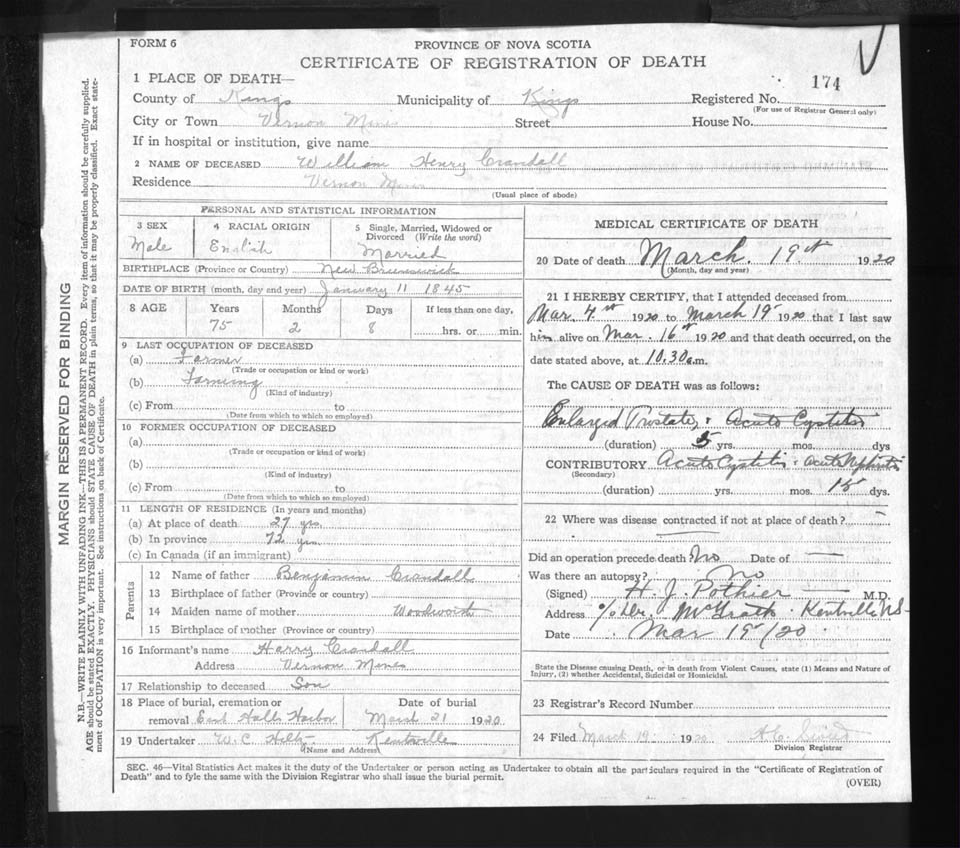 FORM 6
PROVINCE OF NOVA SCOTIA
CERTIFICATE OF REGISTRATION OF DEATH
174
1 PLACE OF DEATH—
County of Kings Municipality of Kings Registered No.
(For use of Registrar General only)
City or Town Vernon Mines Street House No.
If in hospital or institution, give name
2 NAME OF DECEASED William Henry Crandall
Residence Vernon Mines
(Usual place of abode)
MARGIN RESERVED FOR BINDING
N.B.—WRITE PLAINLY WITH UNFADING INK—THIS IS A PERMANENT RECORD. Every item of information should be carefully supplied.
AGE should be stated EXACTLY. PHYSICIANS should STATE CAUSE OF DEATH in plain terms, so that it may be properly classified. Exact state-
ment of OCCUPATION is very important. See instructions on back of Certificate.
PERSONAL AND STATISTICAL INFORMATION
3 SEX
Male
4 RACIAL ORIGIN
English
5 Single, Married, Widowed or
Divorced (Write the word)
Married
BIRTHPLACE (Province or Country) New Brunswick
DATE OF BIRTH (month, day and year) January 11 1845
8 AGE Years Months Days If less than one day,
75 2 8 hrs. or min.
9 LAST OCCUPATION OF DECEASED
(a) Farmer
(Trade or occupation or kind or work)
(b) Farming
(Kind of industry)
(c) From to
(Date from which to which so employed)
10 FORMER OCCUPATION OF DECEASED
(a)
(Trade or occupation or kind of work)
(b)
(Kind of industry)
(c) From to
(Date from which to which so employed)
11 LENGTH OF RESIDENCE (In years and months)
(a) At place of death 27 yrs
(b) In province 72 yrs
(c) In Canada (if an immigrant)
Parents
12 Name of father Benjamin Crandall
13 Birthplace of father (Province or country)
14 Maiden name of mother Woodworth
15 Birthplace of mother (Province or country)
16 Informant's name Harry Crandall
Address Vernon Mines
17 Relationship to deceased Son
18 Place of burial, cremation or
removal East Halls Harbor
Date of burial
March 21 1920
19 Undertaker W. C. Hiltz Kentville
(Name and Address)
MEDICAL CERTIFICATE OF DEATH
20 Date of death March. 19th 1920
(Month, day and year)
21 I HEREBY CERTIFY, that I attended deceased from
Mar. 4 1920 to March 19 1920 that I last saw
him alive on Mar. 16th 1920 and that death occurred, on the
date stated above, at 10.30 a.m.
The CAUSE OF DEATH was as follows:
Enlarged Prostate, + Acute Cystitis
(duration) 5 yrs. mos. dys
CONTRIBUTORY Acute Cystitis + Acute Nephritis
(Secondary)
(duration) yrs. mos. 15 dys.
22 Where was disease contracted if not at place of death?
Did an operation precede death? No Date of —
Was there an autopsy? No
(Signed) H. J. Pothier M.D.
Address % Dr. McGrath. Kentville N.S.
Date Mar 19/20
State the Disease causing Death, or in death from Violent Causes, state (1) Means and Nature of
Injury, (2) whether Accidental, Suicidal or Homicidal.
23 Registrar's Record Number
24 Filed March 19 1920
Division Registrar
SEC. 46—Vital Statistics Act makes it the duty of the Undertaker or person acting as Undertaker to obtain all the particulars required in the "Certificate of Registration of
Death" and to fyle the same with the Division Registrar who shall issue the burial permit.
(OVER)